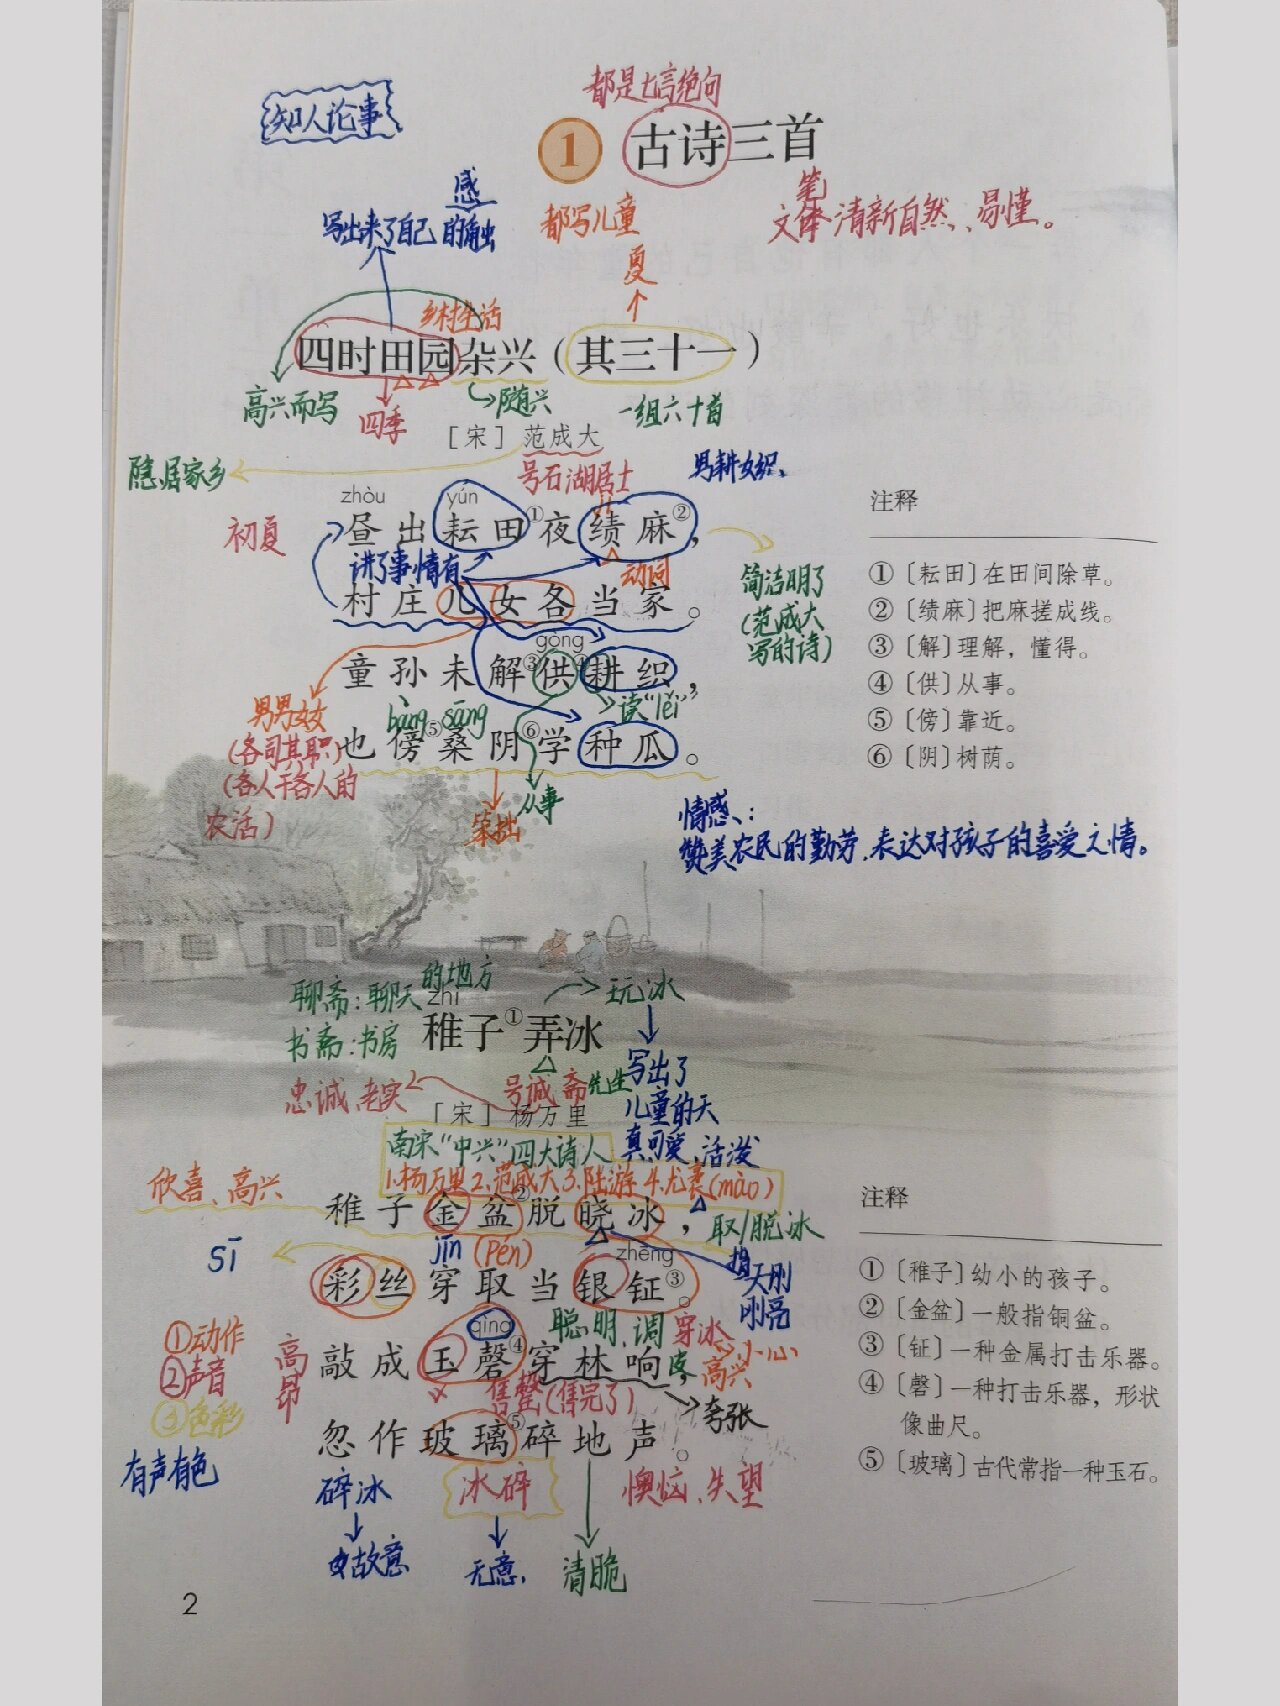 都是七言绝句
知人论事
1 古诗三首
感
笔
写出来了自己的触
都写儿童
文体:清新自然、易懂。
夏
乡村生活
四时田园杂兴（其三十一）
高兴而写
四季
随兴
一组六十首
［宋］范成大
隐居家乡
号石湖居士
男耕女织、
zhòu yún
初夏
昼出耘田①夜绩麻②，
讲了事情有
动词
村庄儿女各当家。
简洁明了
(范成大
写的诗)
gòng
童孙未解③供④耕织，
读"lěi"
男男女女
(各司其职)
(各人干各人的
农活)
bàng sāng
也傍⑤桑阴⑥学种瓜。
从事
笨拙
注释
①〔耘田〕在田间除草。
②〔绩麻〕把麻搓成线。
③〔解〕理解，懂得。
④〔供〕从事。
⑤〔傍〕靠近。
⑥〔阴〕树荫。
情感:
赞美农民的勤劳,表达对孩子的喜爱之情。
聊斋:聊天的地方
书斋:书房
玩冰
zhì
稚子①弄冰
写出了
儿童的天
真可爱、活泼
忠诚、老实
号诚斋先生
［宋］杨万里
南宋"中兴"四大诗人
1.杨万里2.范成大3.陆游4.尤袤(mào)
欣喜、高兴
稚子金盆②脱晓冰，
取/脱冰
sī
jīn (pén)
zhēng
指天刚
刚亮
彩丝穿取当银钲③。
①动作
②声音
③色彩
有声有色
高昂
qìng
聪明、调皮
穿冰
小心
高兴
敲成玉磬④穿林响，
售罄(售完了)
夸张
忽作玻璃⑤碎地声。
碎冰
冰碎
懊恼、失望
故意
无意
清脆
注释
①〔稚子〕幼小的孩子。
②〔金盆〕一般指铜盆。
③〔钲〕一种金属打击乐器。
④〔磬〕一种打击乐器，形状
像曲尺。
⑤〔玻璃〕古代常指一种玉石。
2